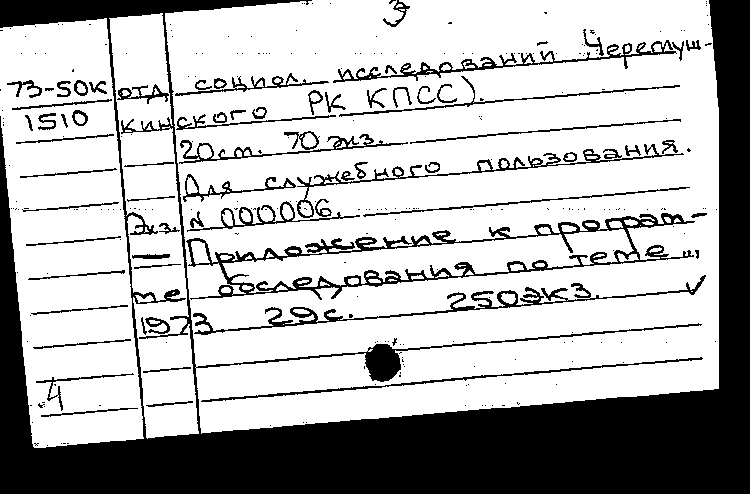 3
73-50к отд. социол. исследований Череглуш-
1510 кинского РК КПСС).
20см. 70 экз.
Для служебного пользования.
Экз. N 000006.
— Приложение к програм-
ме обследования по теме „,
1973 29с. 250экз. ✓
4